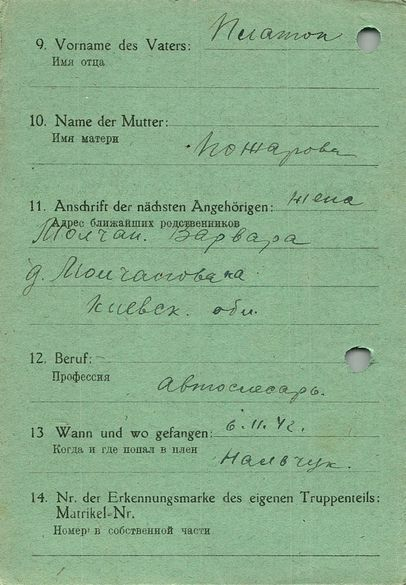 9. Vorname des Vaters: Платон
Имя отца
10. Name der Mutter:
Имя матери
Пожарова
11. Anschrift der nächsten Angehörigen: жена
Адрес ближайших родственников
Молчан. Варвара
д.
Киевск. обл.
12. Beruf:
Профессия
автослесарь.
13 Wann und wo gefangen: 6.11.42.
Когда и где попал в плен
Нальчук.
14. Nr. der Erkennungsmarke des eigenen Truppenteils:
Matrikel-Nr.
Номер в собственной части